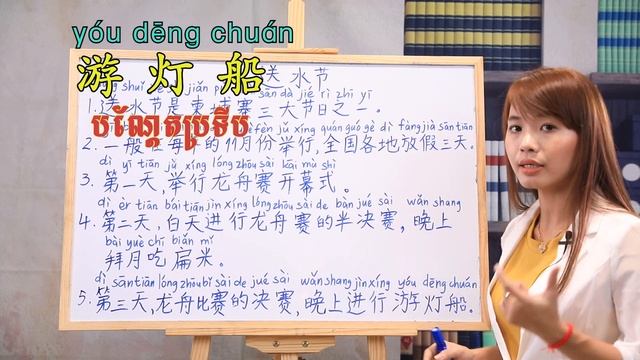 yóu dēng chuán
游灯船
បណ្តែតប្រទីប
送水节
sān dà jié rì zhī yī
1. 送水节是柬埔寨三大节日之一。
fèn jǔ xíng quán guó gè dì fàng jià sān tiān
2. 一般在每年的11月份举行,全国各地放假三天。
dì yī tiān jǔ xíng lóng zhōu sài kāi mù shì
3. 第一天,举行龙舟赛开幕式。
dì èr tiān bái tiān jìn xíng lóng zhōu sài de bàn jué sài wǎn shang
4. 第二天,白天进行龙舟赛的半决赛,晚上
bài yuè chī biǎn mǐ
拜月吃扁米。
dì sān tiān lóng zhōu bǐ sài de jué sài wǎn shang jìn xíng yóu dēng chuán
5. 第三天,龙舟比赛的决赛,晚上进行游灯船。